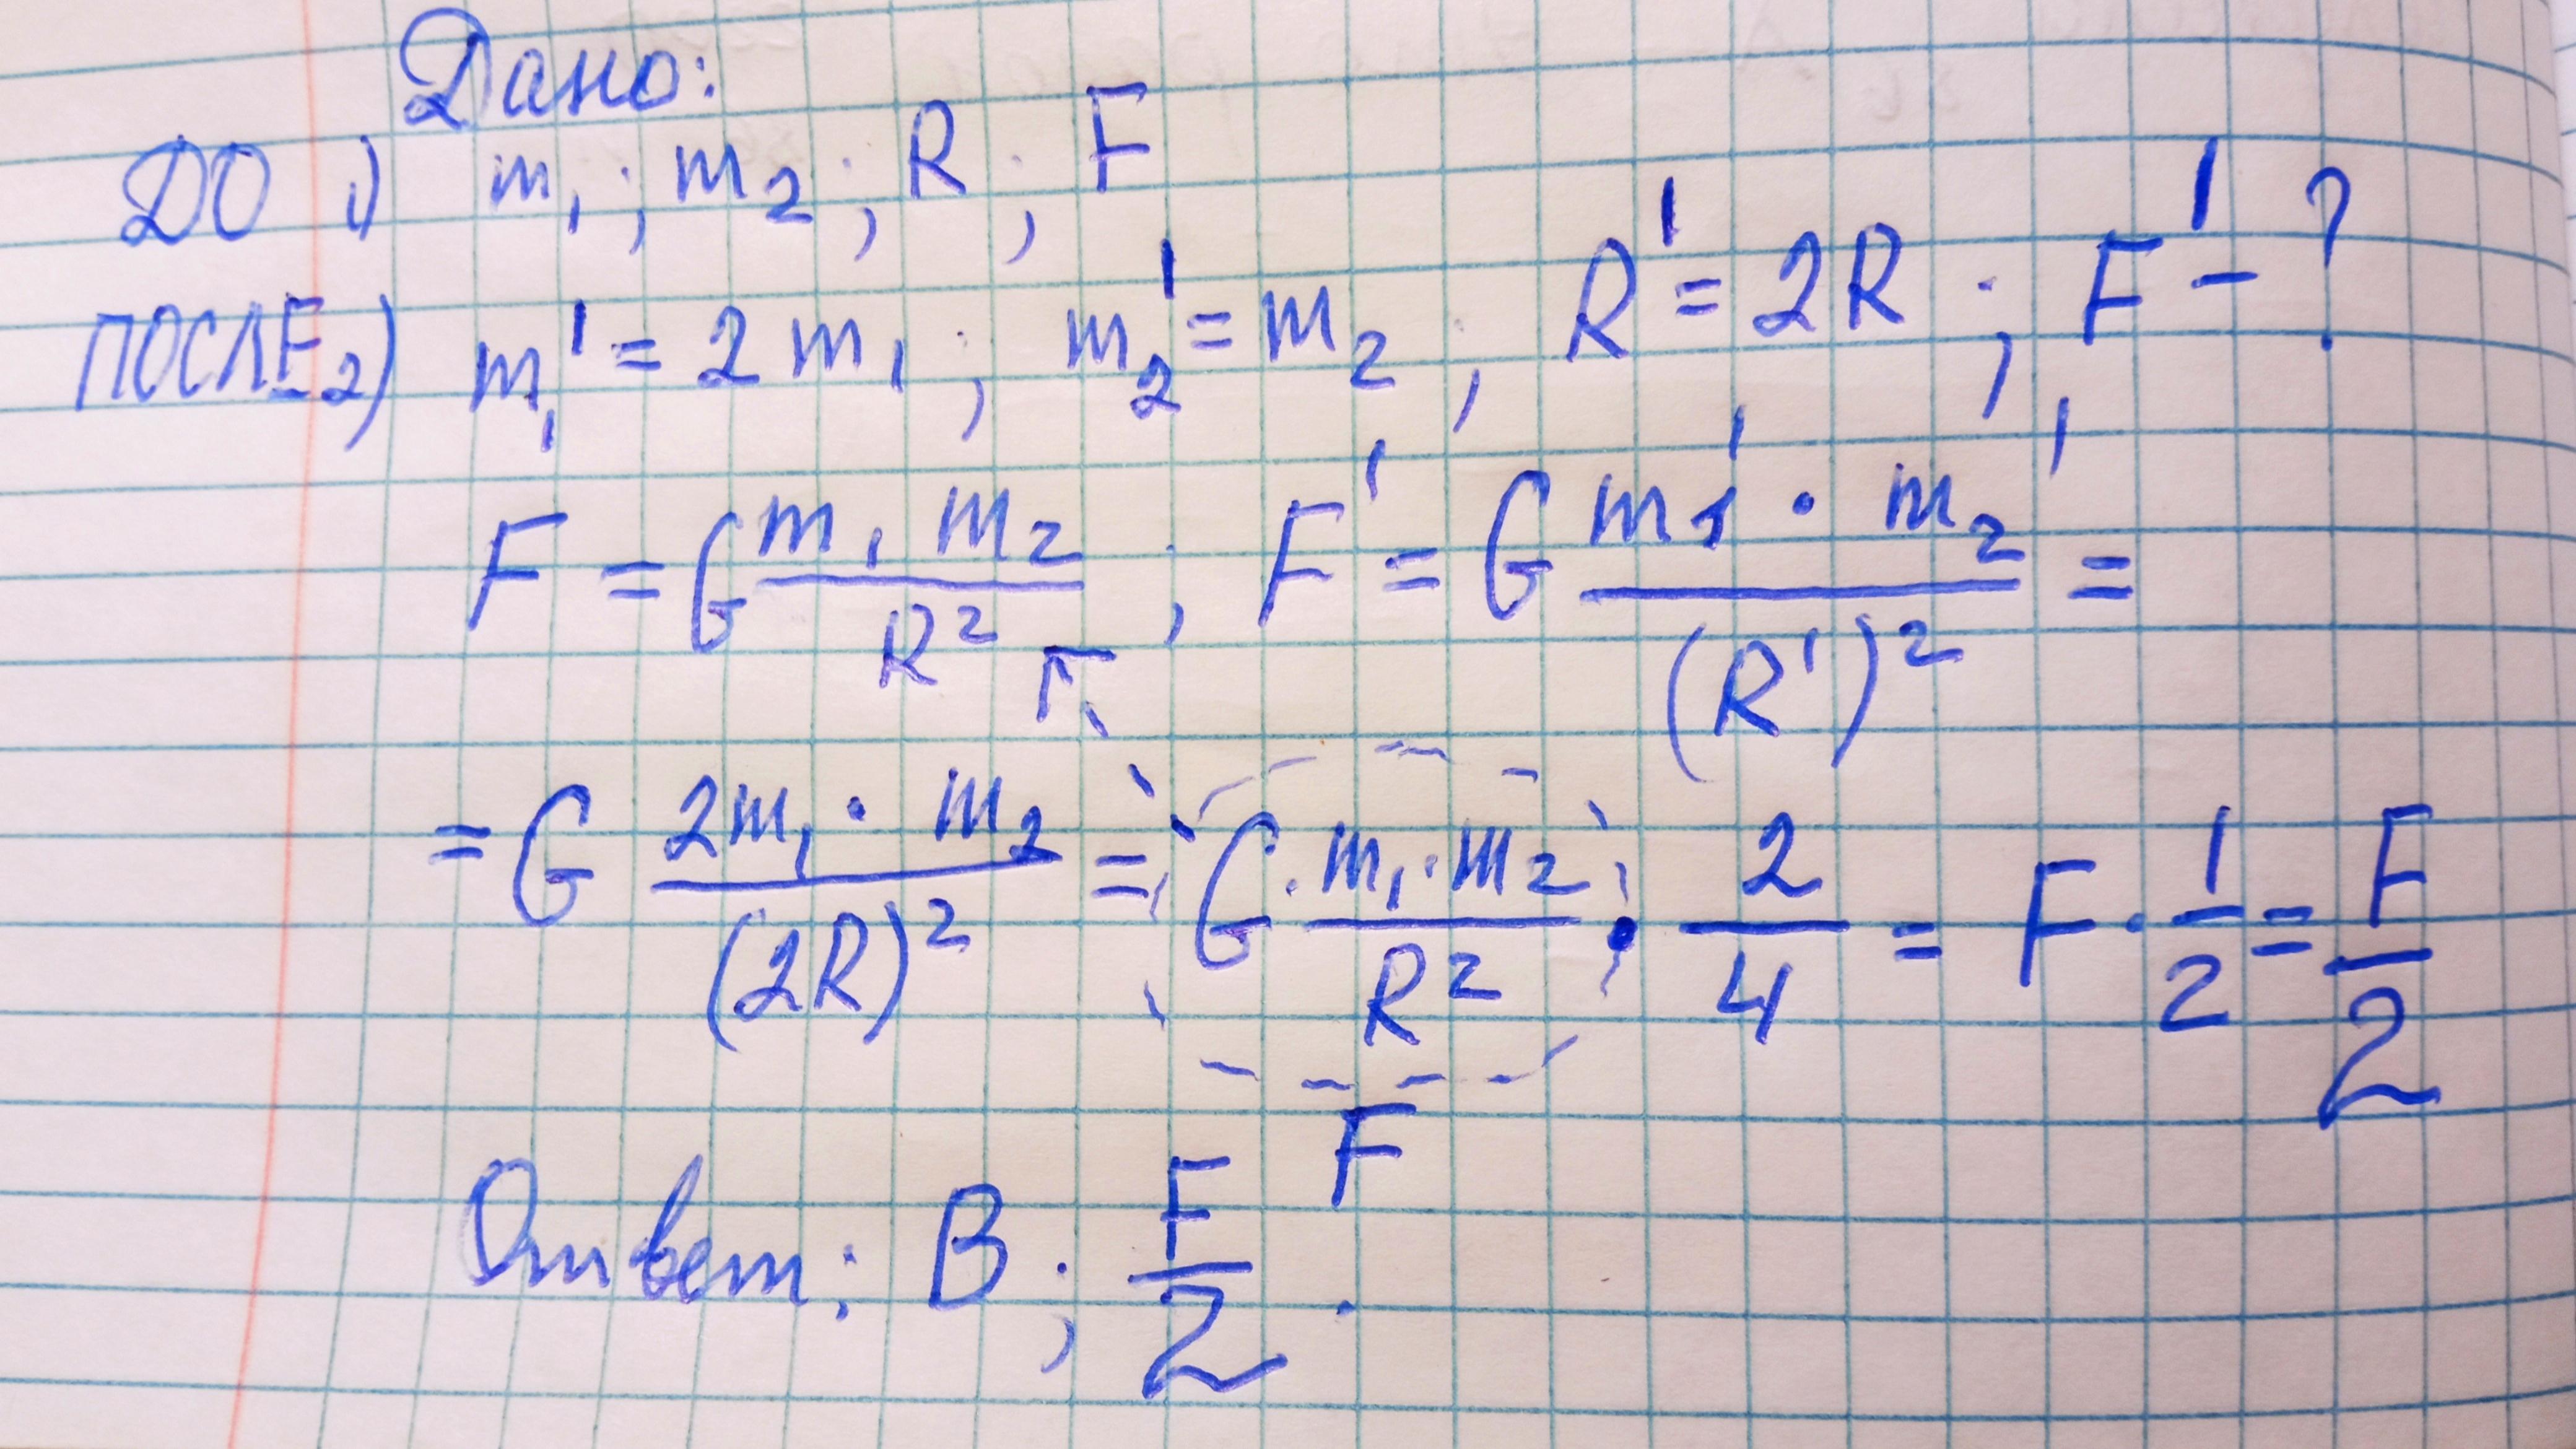 Дано:
ДО 1) m₁; m₂; R; F
ПОСЛЕ 2) m₁' = 2m₁; m₂' = m₂; R' = 2R; F' - ?
F = G m₁ m₂ / R²; F' = G m₁' · m₂' / (R')² =
F
= G 2m₁ · m₂ / (2R)² = G · m₁ · m₂ / R² · 2/4 = F · 1/2 = F/2
F
Ответ: В; F/2.